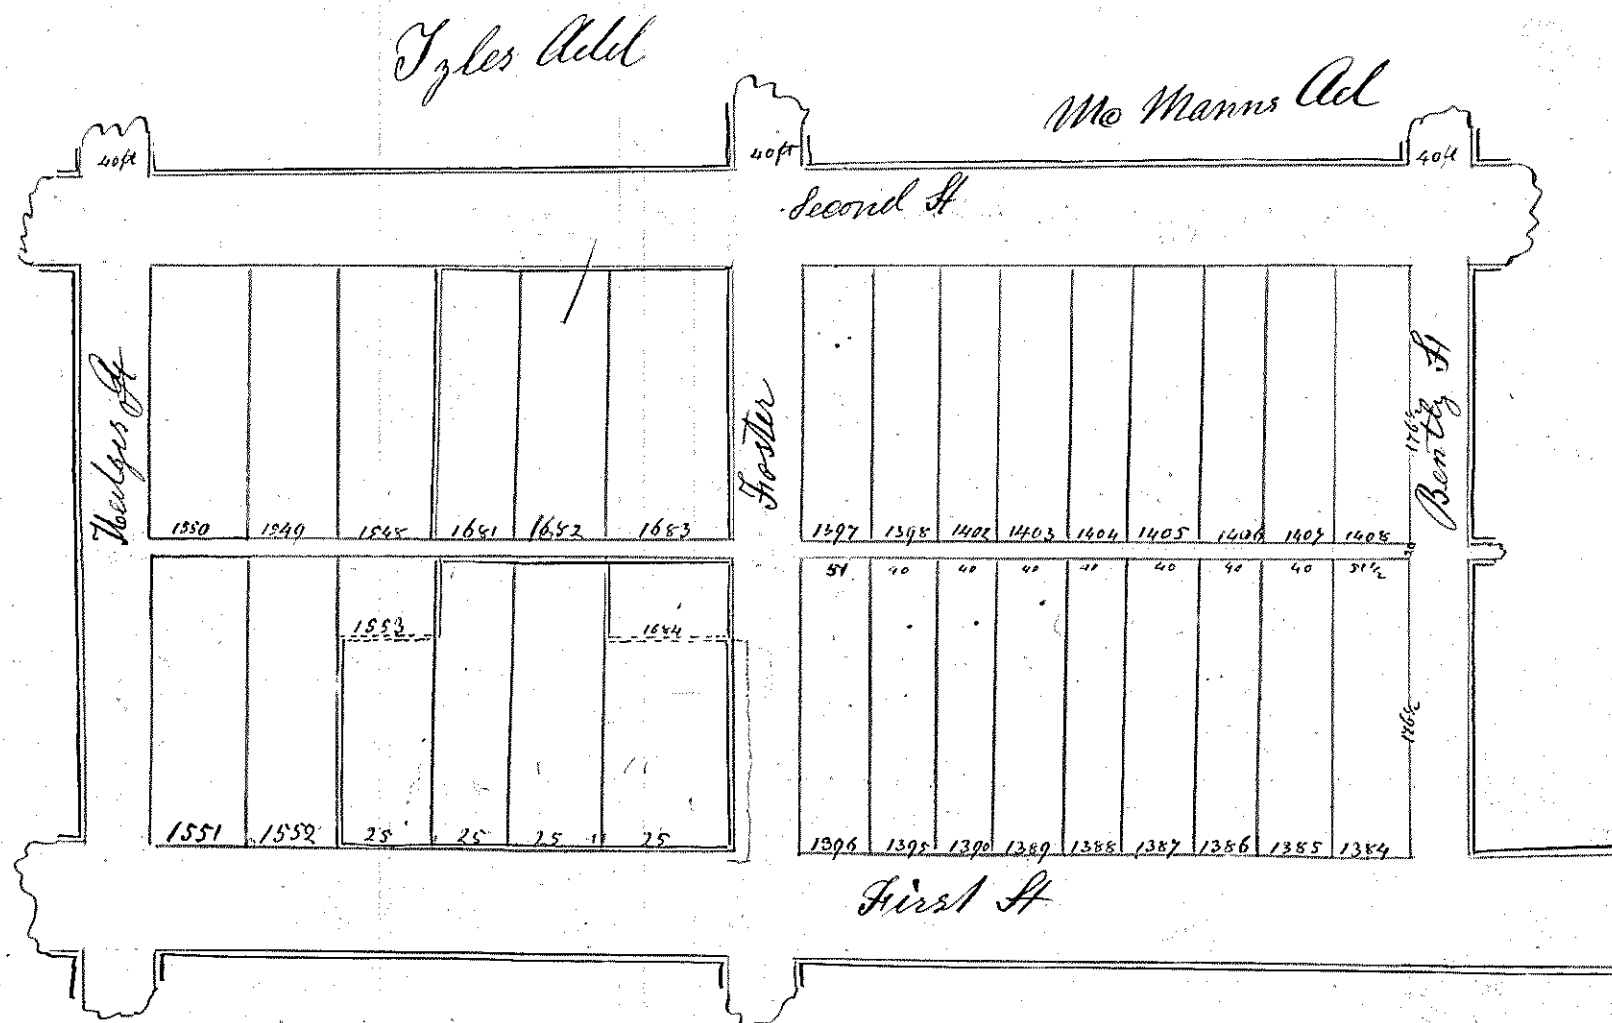 Tyles Add
Mc Manns Ad
40ft
40ft
40ft
Second St
Hedges St
Foster
Bently St
176½
1550 1549 1548 1681 1682 1683
1397 1398 1402 1403 1404 1405 1406 1407 1408
20
51 40 40 40 40 40 40 40 51½
1553
1684
176½
1551 1552 25 25 25 25
1396 1395 1390 1389 1388 1387 1386 1385 1384
First St